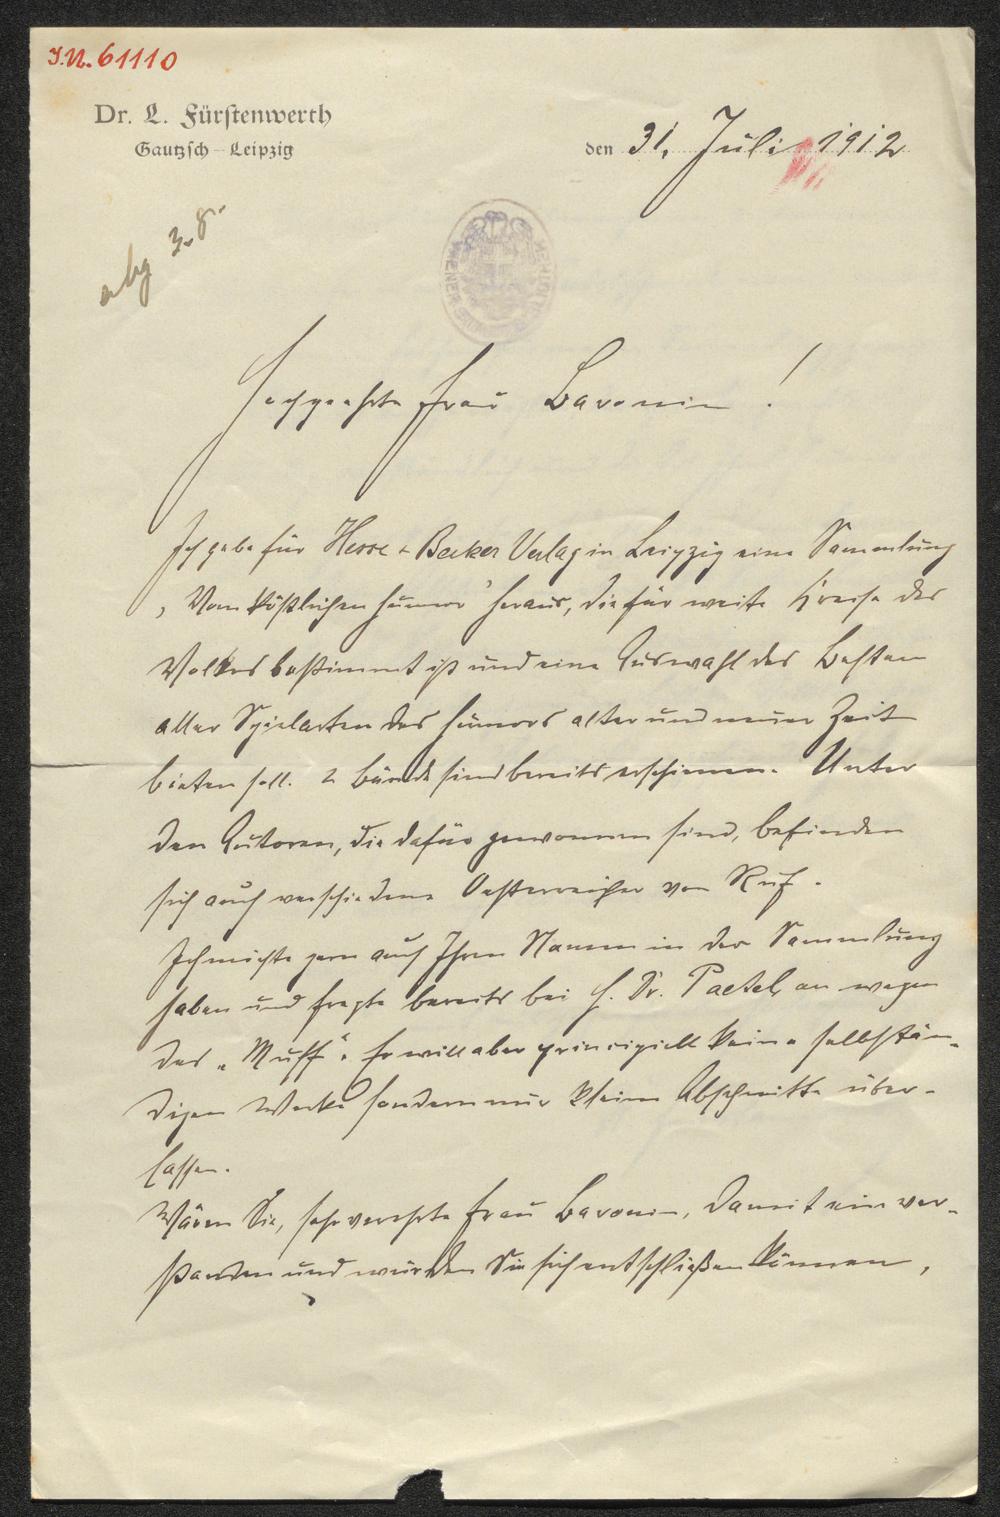 I.N. 61110
Dr. L. Fürstenwerth
Gautzsch-Leipzig
den 31. Juli 1912
abg 3.8.
Hochgeehrte Frau Baronin!
Ich gebe für Hesse & Becker Verlag in Leipzig eine Sammlung
„Vom köstlichen Humor“ heraus, die für weite Kreise des
Volkes bestimmt ist und eine Auswahl des Besten
aller Spielarten des Humors alter und neuer Zeit
bieten soll. 2 Bände sind bereits erschienen. Unter
den Autoren, die dafür gewonnen sind, befinden
sich auch verschiedene Oesterreicher von Ruf.
Ich möchte gern auch Ihren Namen in der Sammlung
haben und fragte bereits bei H. Dr. Paetel an wegen
des „Muff“. Er will aber principiell keine selbstän-
digen Werke sondern nur kleine Abschnitte über-
lassen.
Wären Sie, sehr verehrte Frau Baronin, damit einver-
standen und würden Sie sich entschließen können,